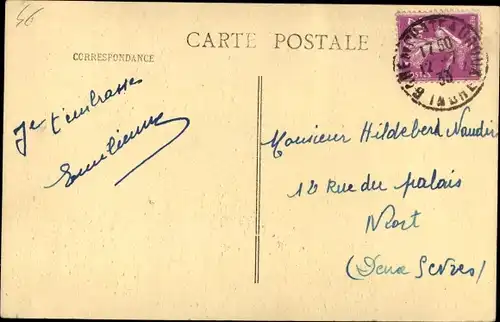 CARTE POSTALE
CORRESPONDANCE
Je t'embrasse
Emilienne
17 50
INDRE
Monsieur Hildebert Naudin
12 Rue du palais
Niort
(Deux Sèvres)